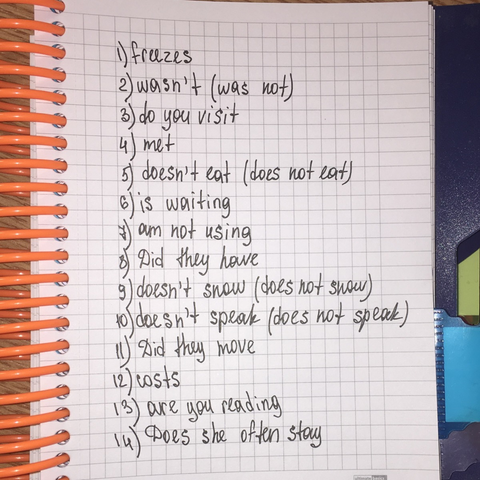 1) freezes
2) wasn't (was not)
3) do you visit
4) met
5) doesn't eat (does not eat)
6) is waiting
7) am not using
8) Did they have
9) doesn't snow (does not snow)
10) doesn't speak (does not speak)
11) Did they move
12) costs
13) are you reading
14) Does she often stay